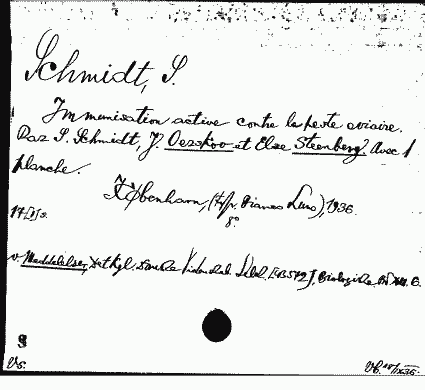 Schmidt, S.
Immunisation active contre la peste aviaire.
Par S. Schmidt, J. Oerskov et Else Steenberg. Avec 1
planche.
København, (typ. Bianco Luno), 1936.
8°.
v. Meddelelser, Det Kgl. danske Vidensk. Selsk. Biologiske
8